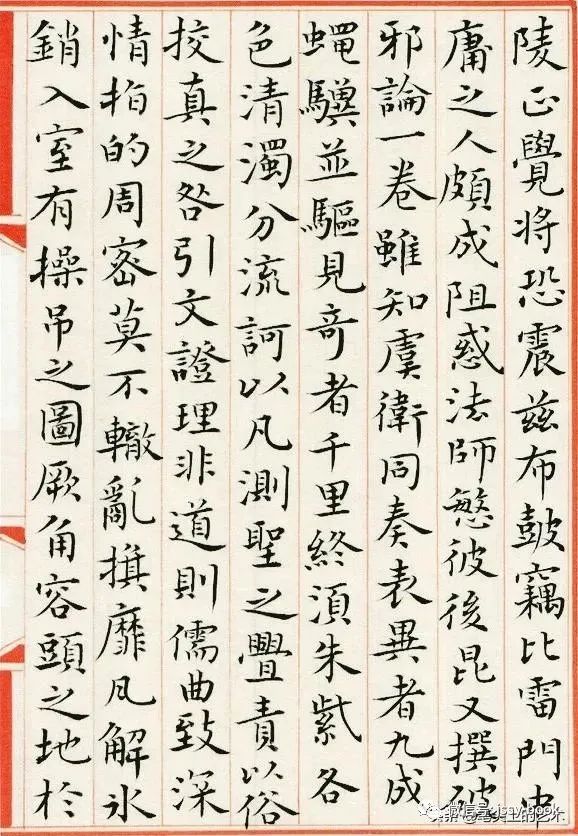 陵正覺将恐震茲布鼓竊比雷門中
庸之人頗成阻惑法師愍彼後昆又撰破
邪論一卷雖知虞衛同奏表異者九成
蠅驥並驅見奇者千里終須朱紫各
色清濁分流訶以凡測聖之舋責以俗
挍真之咎引文證理非道則儒曲致深
情指的周密莫不轍亂旗靡瓦解冰
銷入室有操吊之圖厥角容頭之地於
微信号: jssy-book